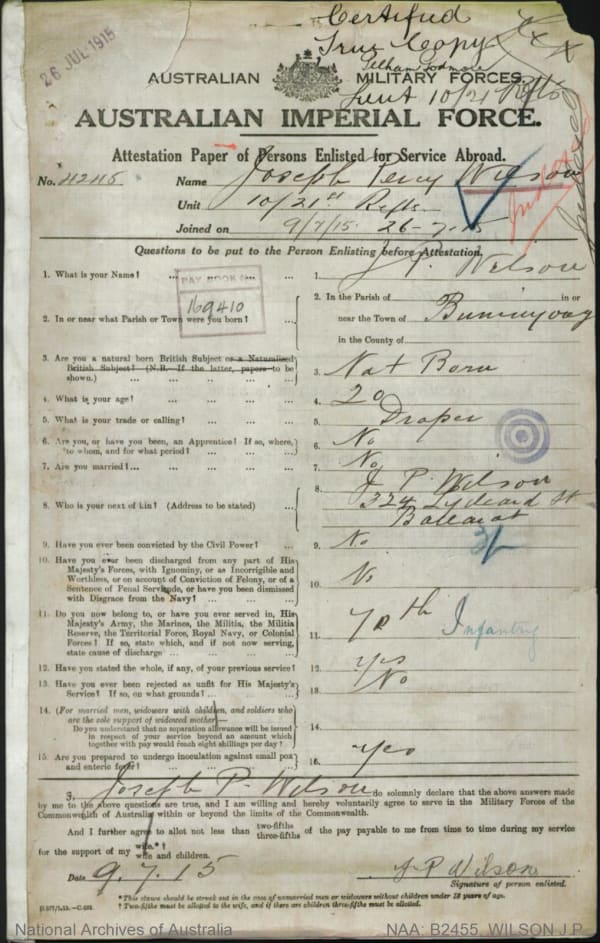 Certified
True Copy
26 JUL 1915
AUSTRALIAN MILITARY FORCES.
Lieut 10/21 Rfts
AUSTRALIAN IMPERIAL FORCE.
Attestation Paper of Persons Enlisted for Service Abroad.
No. 4245 Name Joseph Percy Wilson
Unit 10/21st Rfts
Joined on 9/7/15. 26-7-15
Indexed
Questions to be put to the Person Enlisting before Attestation.
1. What is your Name? ... 1. J. P. Wilson
PAY BOOK
169410
2. In or near what Parish or Town were you born? ... 2. In the Parish of in or
near the Town of Buninyong
in the County of
3. Are you a natural born British Subject or a Naturalized
British Subject? (N.B.—If the latter, papers to be
shown.) ... 3. Nat Born
4. What is your age? ... 4. 20
5. What is your trade or calling? ... 5. Draper
6. Are you, or have you been, an Apprentice? If so, where,
to whom, and for what period? ... 6. No
7. Are you married? ... 7. No
8. Who is your next of kin? (Address to be stated) ... 8. J P Wilson
324 Lydiard St
Ballarat
9. Have you ever been convicted by the Civil Power? ... 9. No
10. Have you ever been discharged from any part of His
Majesty's Forces, with Ignominy, or as Incorrigible and
Worthless, or on account of Conviction of Felony, or of a
Sentence of Penal Servitude, or have you been dismissed
with Disgrace from the Navy? ... 10. No
11. Do you now belong to, or have you ever served in, His
Majesty's Army, the Marines, the Militia, the Militia
Reserve, the Territorial Force, Royal Navy, or Colonial
Forces? If so, state which, and if not now serving,
state cause of discharge ... 11. 70th Infantry
12. Have you stated the whole, if any, of your previous service? 12. yes
13. Have you ever been rejected as unfit for His Majesty's
Service? If so, on what grounds? ... 13. No
14. (For married men, widowers with children, and soldiers who
are the sole support of widowed mother)—
Do you understand that no separation allowance will be issued
in respect of your service beyond an amount which
together with pay would reach eight shillings per day? 14.
15. Are you prepared to undergo inoculation against small pox
and enteric fever? ... 15. yes
I, Joseph P. Wilson do solemnly declare that the above answers made
by me to the above questions are true, and I am willing and hereby voluntarily agree to serve in the Military Forces of the
Commonwealth of Australia within or beyond the limits of the Commonwealth.
And I further agree to allot not less than two-fifths three-fifths of the pay payable to me from time to time during my service
for the support of my wife.*† wife and children.
Date 9.7.15 J P Wilson
Signature of person enlisted.
*This clause should be struck out in the case of unmarried men or widowers without children under 18 years of age.
† Two-fifths must be allotted to the wife, and if there are children three-fifths must be allotted.
National Archives of Australia NAA: B2455, WILSON J P